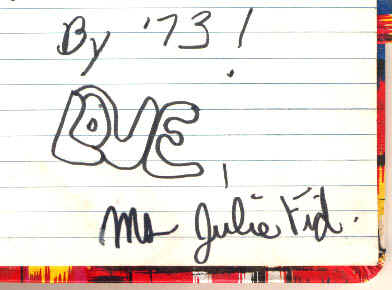 By '73!
LOVE,
Ms Julie Fid.